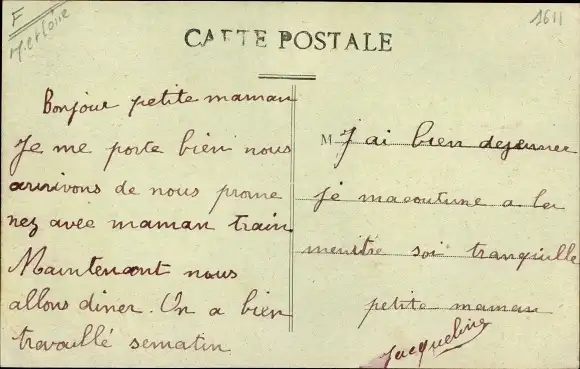 F
M. et Loire
1611
CARTE POSTALE
Bonjour petite maman
Je me porte bien nous
arrivons de nous prome
nez avec maman train
Maintenant nous
allons diner. On a bien
travaillé sematin
M J'ai bien dejeunee
je macoutume a la
menitré soi tranquille
petite maman
Jacqueline